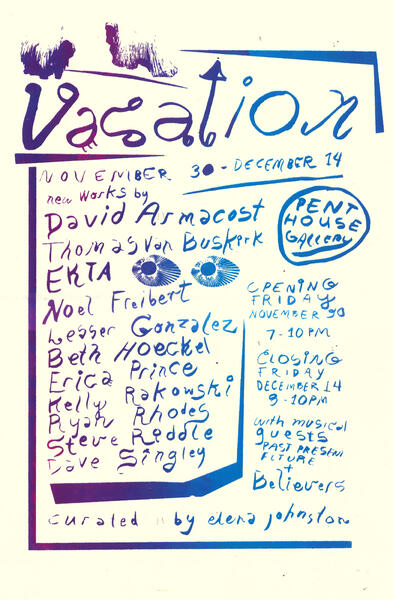 Vacation
NOVEMBER 30 - DECEMBER 14
new works by
David Armacost
Thomas Van Buskirk
EKTA
Noel Freibert
Lesser Gonzalez
Beth Hoeckel
Erica Prince
Kelly Rakowski
Ryan Rhodes
Steve Riddle
Dave Singley
PENT
HOUSE
GALLERY
OPENING
FRIDAY
NOVEMBER 30
7-10PM
CLOSING
FRIDAY
DECEMBER 14
9-10PM
with musical
guests
PAST PRESENT
FUTURE
+
Believers
curated by elena johnston